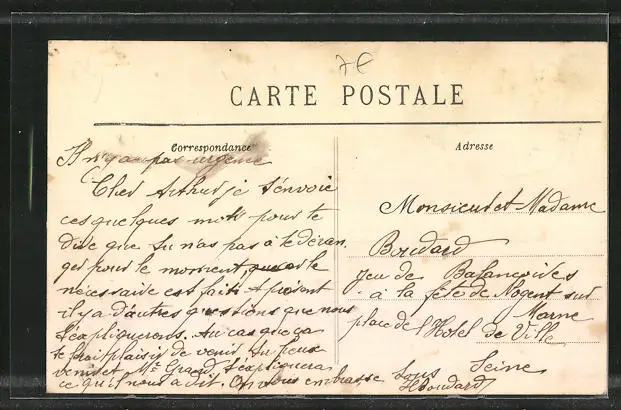 7€
CARTE POSTALE
Correspondance
Adresse
Il n'y a pas urgence
Cher Arthur je t'envoie
ces quelques mots pour te
dire que tu n'as pas à te déran
ger pour le moment, le
nécessaire est fait à présent
il y a d'autres questions que nous
t'expliquerons. Au cas que ça
te frait plaisir de venir tu peux
venir et Mr Giraud t'expliquera
ce qu'il nous a dit. On vous embrasse tous
Houdard
Monsieur et Madame
Boudard
Jeu de Balançoires
à la fête de Nogent sur
Marne
place de l'Hotel de Ville
Seine